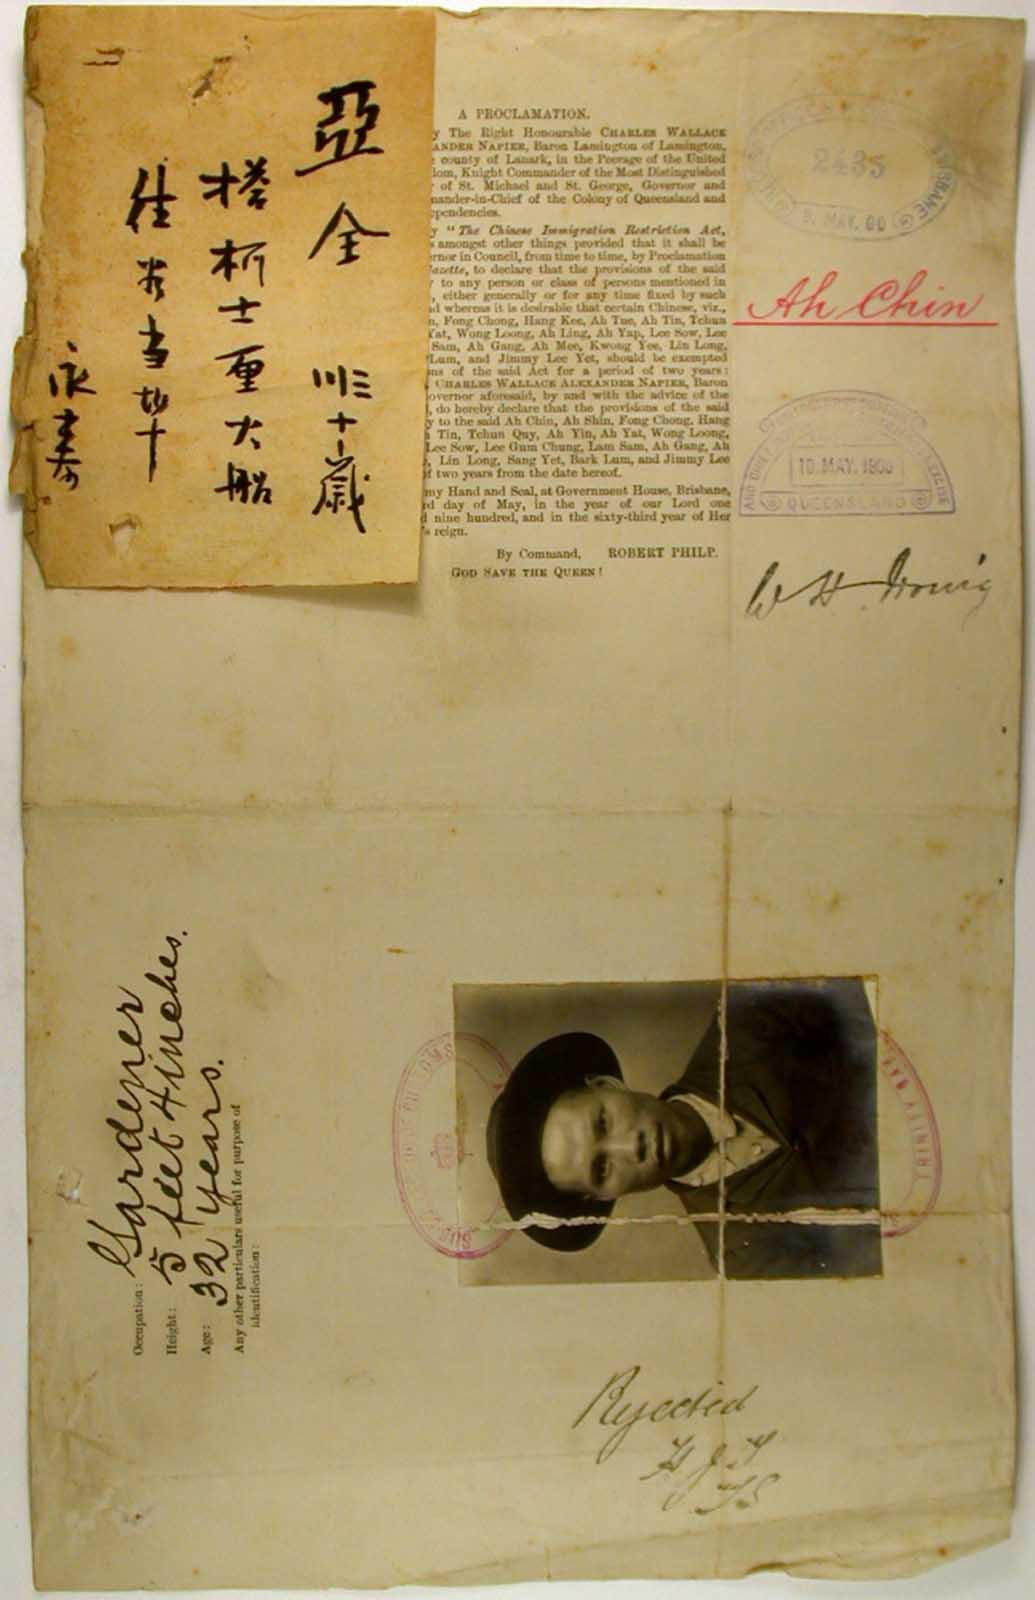 亞全 卅二歲
搭 士 大船
往 
永壽
A PROCLAMATION.
y The Right Honourable CHARLES WALLACE
ANDER NAPIER, Baron Lamington of Lamington,
county of Lanark, in the Peerage of the United
dom, Knight Commander of the Most Distinguished
of St. Michael and St. George, Governor and
mander-in-Chief of the Colony of Queensland and
ependencies.
y "The Chinese Immigration Restriction Act,
s amongst other things provided that it shall be
rnor in Council, from time to time, by Proclamation
azette, to declare that the provisions of the said
y to any person or class of persons mentioned in
, either generally or for any time fixed by such
d whereas it is desirable that certain Chinese, viz.,
n, Fong Chong, Hang Kee, Ah Tue, Ah Tin, Tchun
Yat, Wong Loong, Ah Ling, Ah Yap, Lee Sow, Lee
Sam, Ah Gang, Ah Mee, Kwong Yee, Lin Long,
Lum, and Jimmy Lee Yet, should be exempted
ns of the said Act for a period of two years:
, CHARLES WALLACE ALEXANDER NAPIER, Baron
overnor aforesaid, by and with the advice of the
l, do hereby declare that the provisions of the said
y to the said Ah Chin, Ah Shin, Fong Chong, Hang
h Tin, Tchun Quy, Ah Yin, Ah Yat, Wong Loong,
Lee Sow, Lee Gum Chung, Lam Sam, Ah Gang, Ah
, Lin Long, Sang Yet, Bark Lum, and Jimmy Lee
f two years from the date hereof.
my Hand and Seal, at Government House, Brisbane,
rd day of May, in the year of our Lord one
d nine hundred, and in the sixty-third year of Her
's reign.
By Command, ROBERT PHILP.
GOD SAVE THE QUEEN!
2435
BRISBANE
Ah Chin
10. MAY. 1900
QUEENSLAND
W H
Occupation: Gardener
Height: 5 feet 4 inches.
Age: 32 years.
Any other particulars useful for purpose of
identification:
Rejected